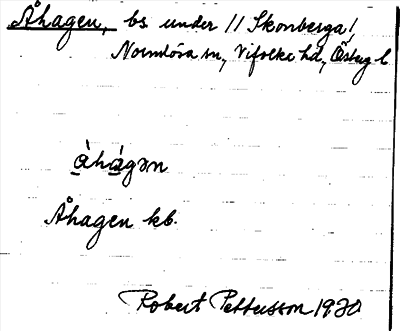 Åhagen, bs. under 11 Skonberga,
Normlösa sn, Vifolke hd, Östergl.
a̱̍ha̱̍gən
Åhagen kb.
Robert Pettersson 1930